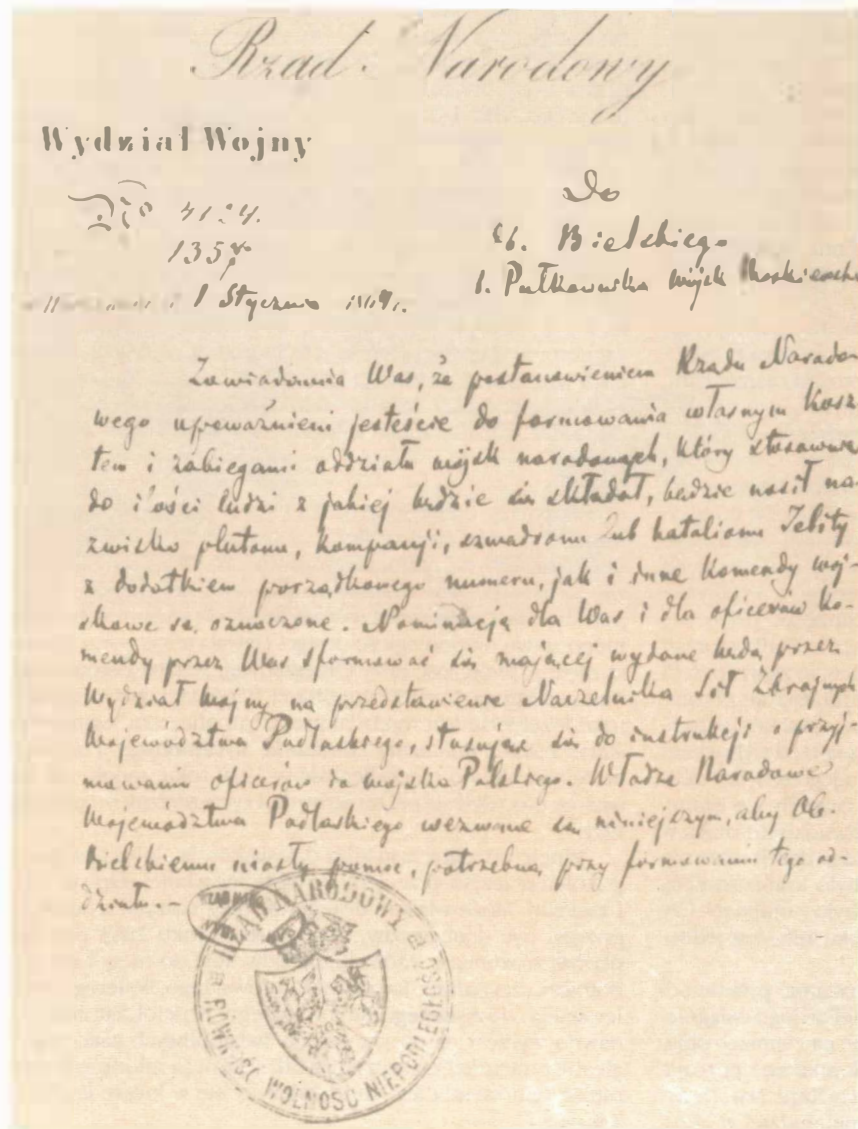 Rząd Narodowy
Wydział Wojny
No 4124.
135
1 Stycznia
Do
Ob. Bielskiego
b. Pułkownika wojsk Moskiewski
Zawiadamia Was, że postanowieniem Rządu Narodo-
wego upoważnieni jesteście do formowania własnym kosz-
tem i zabiegami oddziału wojsk narodowych, który stosownie
do ilości ludzi z jakiej będzie się składał, będzie nosił na-
zwisko plutonu, kompanji, szwadronu lub batalionu Jelity
z dodatkiem porządkowego numeru, jak i inne komendy woj-
skowe są oznaczone. Nominacją dla Was i dla oficerów ko-
mendy przez Was sformować się mającej wydane będą przez
Wydział Wojny na przedstawienie Naczelnika Sił Zbrojnych
Województwa Podlaskiego, stosując się do instrukcji o przyj-
mowaniu oficerów do wojska Polskiego. Władze Narodowe
Województwa Podlaskiego wezwane są niniejszym, aby Ob.
Bielskiemu niosły pomoc, potrzebną przy formowaniu tego od-
działu.-
RZĄD NARODOWY
RÓWNOŚĆ WOLNOŚĆ NIEPODLEGŁOŚĆ